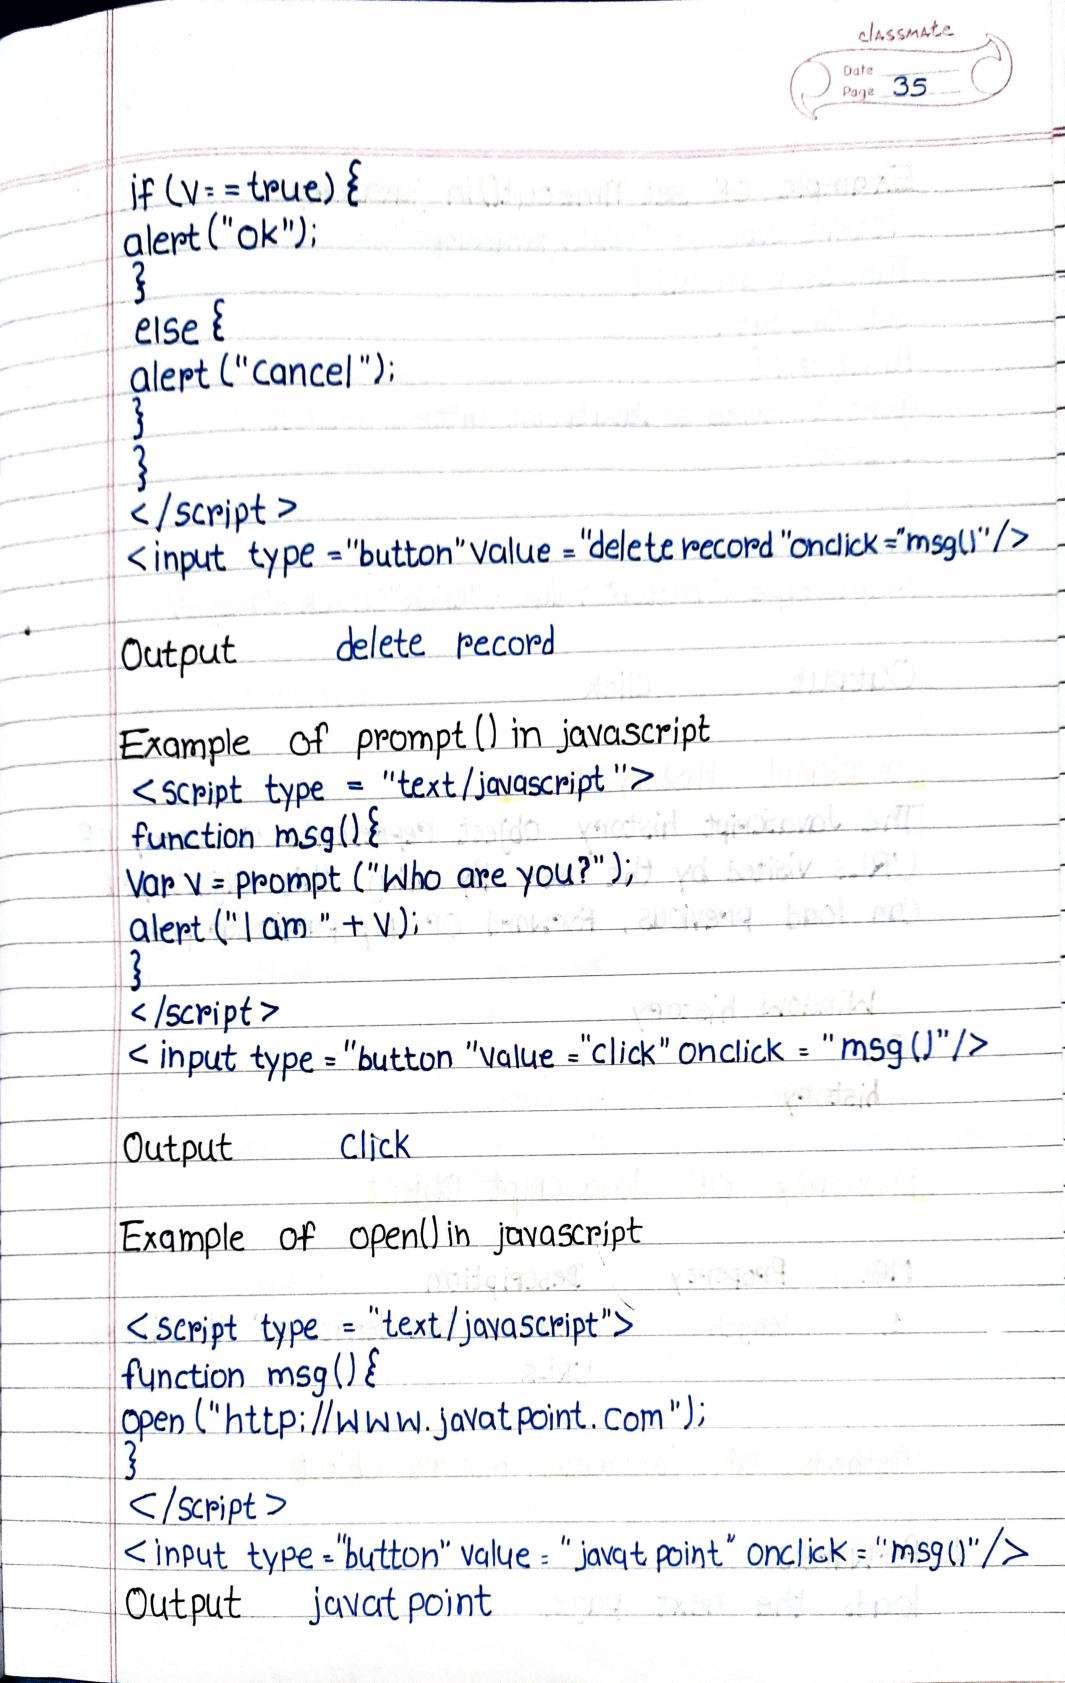 classmate
Date
Page 35
if (v==true) {
alert("ok");
}
else {
alert ("cancel");
}
}
</script>
<input type ="button" value = "delete record "onclick ="msg()"/>
Output delete record
Example of prompt() in javascript
<script type = "text/javascript">
function msg(){
Var v = prompt ("Who are you?");
alert ("I am " + v);
}
</script>
< input type = "button "value ="click" onclick = "msg ()"/>
Output Click
Example of open() in javascript
<script type = "text/javascript">
function msg() {
open ("http://www.javatpoint.com");
}
</script>
<input type ="button" value = "javat point" onclick = "msg()"/>
Output javat point